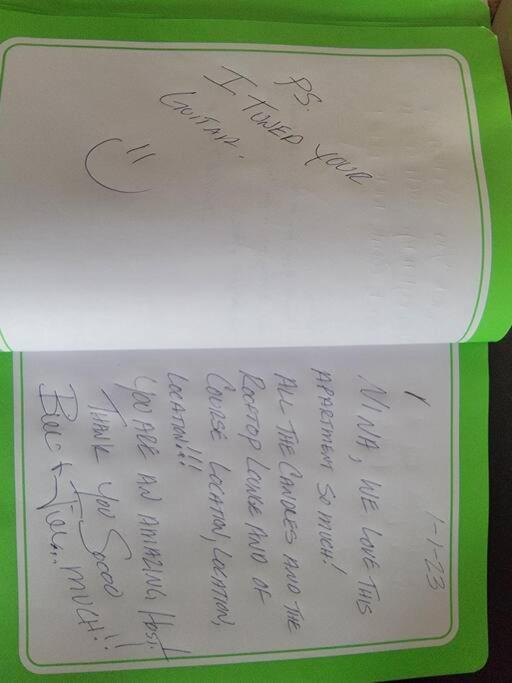 1-1-23
NINA, WE LOVE THIS
APARTMENT SO MUCH!
ALL THE CANDLES AND THE
ROOFTOP LOUNGE AND OF
COURSE LOCATION, LOCATION,
LOCATION!!!
YOU ARE AN AMAZING HOST.
THANK YOU SOOOO
MUCH!!
PS.
I TUNED YOUR
GUITAR.